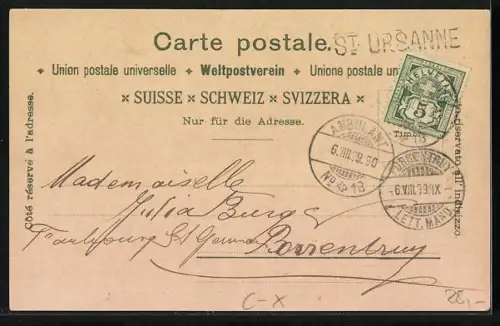 Carte postale.
ST. URSANNE
Union postale universelle Weltpostverein Unione postale un
SUISSE SCHWEIZ SVIZZERA
Nur für die Adresse.
Côté réservé à l'adresse.
riservato all'indirizzo.
HELVETIA
5
AMBULANT
6.VIII.99.
No
Mademoiselle
Julia Burger
Faubourg St Germain Porrentruy
PORRENTRUY
6.VIII.99.IX
LETT. MAND
C-X
28,-